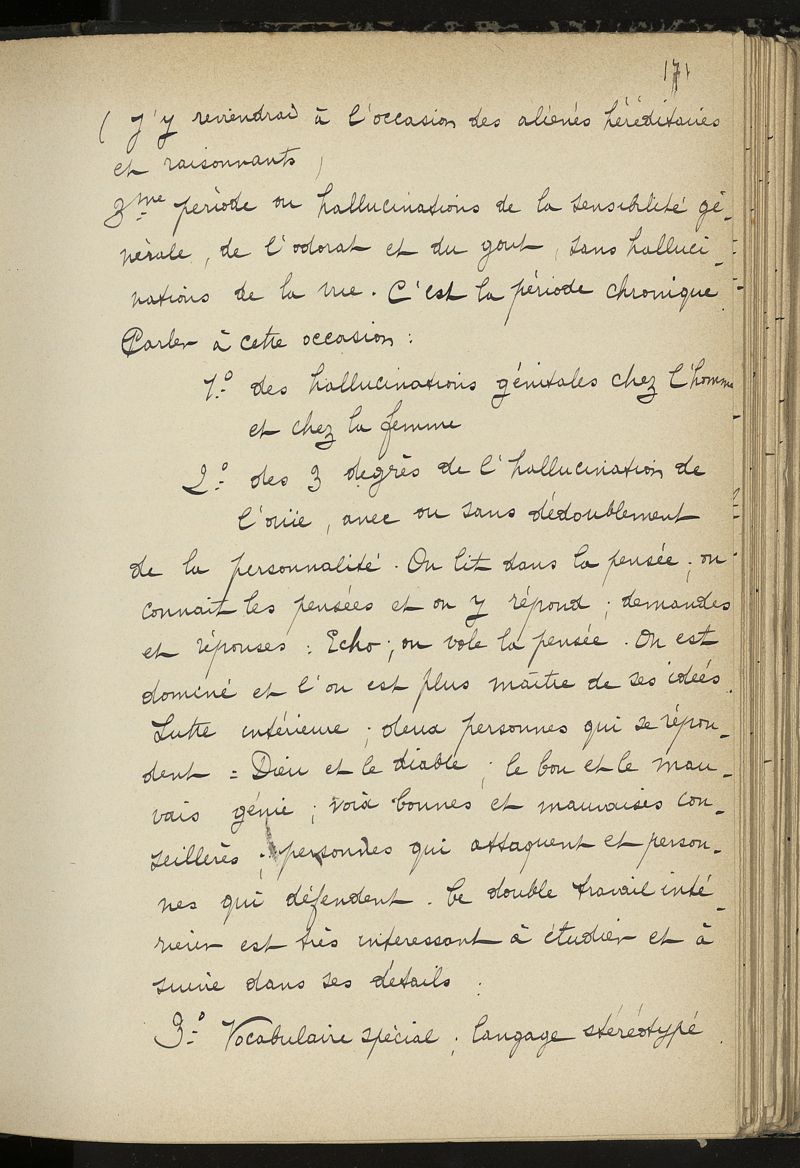 171
( J'y reviendrai à l'occasion des aliénés héréditaires
et raisonnants )
3me période ou hallucinations de la sensibilité gé-
nérale, de l'odorat et du gout, sans halluci-
nations de la vue. C'est la période chronique.
Parler à cette occasion :
1o des hallucinations génitales chez l'homme
et chez la femme
2o des 3 degrés de l'hallucination de
l'ouïe, avec ou sans dédoublement
de la personnalité. On lit dans la pensée ; on
connait les pensées et on y répond ; demandes
et réponses : Echo ; on vole la pensée. On est
dominé et l'on est plus maître de ses idées.
Lutte intérieure ; deux personnes qui se répon-
dent = Dieu et le diable ; le bon et le mau-
vais génie ; voix bonnes et mauvaises con-
seillères ; personnes qui attaquent et person-
nes qui défendent. Ce double travail inté-
rieur est très interessant à étudier et à
suivre dans ses détails.
3o Vocabulaire spécial ; langage stéréotypé